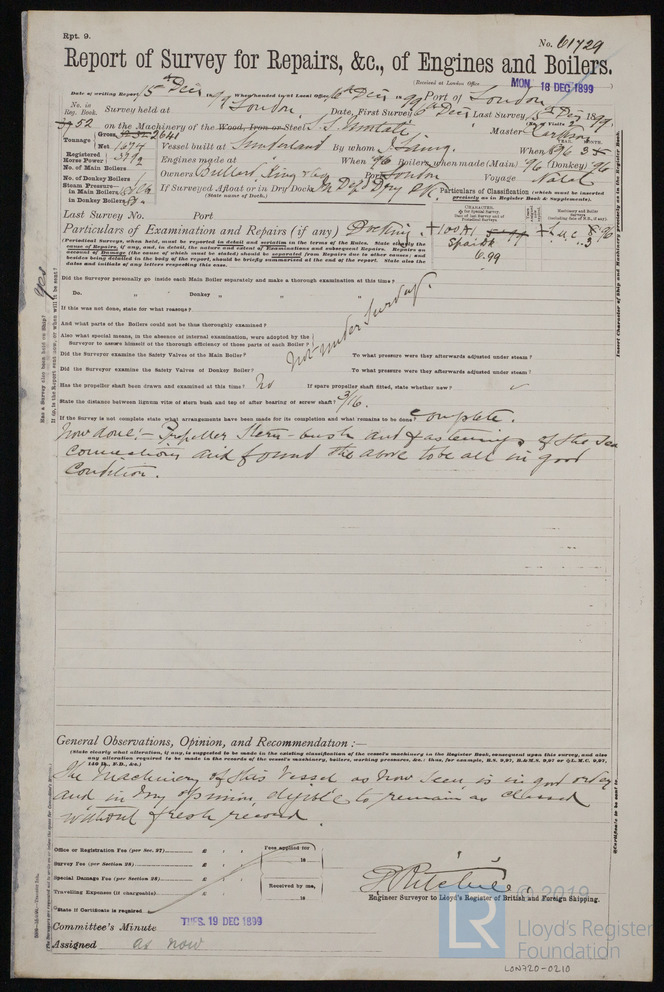 Rpt. 9.
No. 61729
Report of Survey for Repairs, &c., of Engines and Boilers.
(Received at London Office MON. 18 DEC 1899
Date of writing Report 15th Dec 1899 When handed in at Local Office 16th Dec 1899 Port of London
No. in Reg. Book. Survey held at London. Date, First Survey Dec Last Survey 15th Dec 1899
52 on the Machinery of the Wood, Iron or Steel S.S. Umtali Master
Tonnage Gross 2641 Net 1674 Vessel built at Sunderland By whom J. Laing. When 96 3
Registered Horse Power Engines made at When 96 Boilers, when made (Main) 96 (Donkey) 96
No. of Main Boilers Owners Bullard, King & Co Port London Voyage Natal
No. of Donkey Boilers
Steam Pressure in Main Boilers
in Donkey Boilers
If Surveyed Afloat or in Dry Dock Dry Dk.
(State name of Dock.)
Particulars of Classification (which must be inserted precisely as in Register Book & Supplements).
Last Survey No. Port
Particulars of Examination and Repairs (if any) Docking. +100A1 + L.M.C. 96
6.99
(Periodical Surveys, when held, must be reported in detail and seriatim in the terms of the Rules. State clearly the
cause of Repairs, if any, and, in detail, the nature and extent of Examinations and subsequent Repairs. Repairs on
account of Damage (the cause of which must be stated) should be separated from Repairs due to other causes; and
besides being detailed in the body of the report, should be briefly summarised at the end of the report. State also the
dates and initials of any letters respecting this case.
Did the Surveyor personally go inside each Main Boiler separately and make a thorough examination at this time?
Do. " " Donkey " " " "
If this was not done, state for what reasons?
And what parts of the Boilers could not be thus thoroughly examined?
Also what special means, in the absence of internal examination, were adopted by the
Surveyor to assure himself of the thorough efficiency of these parts of each Boiler?
Not under Survey.
Did the Surveyor examine the Safety Valves of the Main Boiler? To what pressure were they afterwards adjusted under steam?
Did the Surveyor examine the Safety Valves of Donkey Boiler? To what pressure were they afterwards adjusted under steam?
Has the propeller shaft been drawn and examined at this time? No If spare propeller shaft fitted, state whether new?
State the distance between lignum vitæ of stern bush and top of after bearing of screw shaft? 3/16.
If the Survey is not complete state what arrangements have been made for its completion and what remains to be done? Complete.
Now done:- Propeller Stern-bush and fastenings of the sea
connections and found the above to be all in good
condition.
General Observations, Opinion, and Recommendation:—
(State clearly what alteration, if any, is suggested to be made in the existing classification of the vessel's machinery in the Register Book, consequent upon this survey, and also
any alteration required to be made in the records of the vessel's machinery, boilers, working pressures, &c.; thus, for example, B.S. 9,97, B.&M.S. 9,97 or L.M.C. 9,97,
140 lb., F.D., &c.)
The Machinery of this Vessel as now seen is in good order
and in my opinion, eligible to remain as classed
without fresh record.
Office or Registration Fee (per Sec. 27) £ Fees applied for
Survey Fee (per Section 28) £ 18
Special Damage Fee (per Section 28) £ Received by me,
Travelling Expenses (if chargeable) £ 18
State if Certificate is required
P. Ritchie.
Engineer Surveyor to Lloyd's Register of British and Foreign Shipping.
Committee's Minute TUES. 19 DEC 1899
Assigned as now
© 2019
LR Lloyd's Register
Foundation
LON720-0210